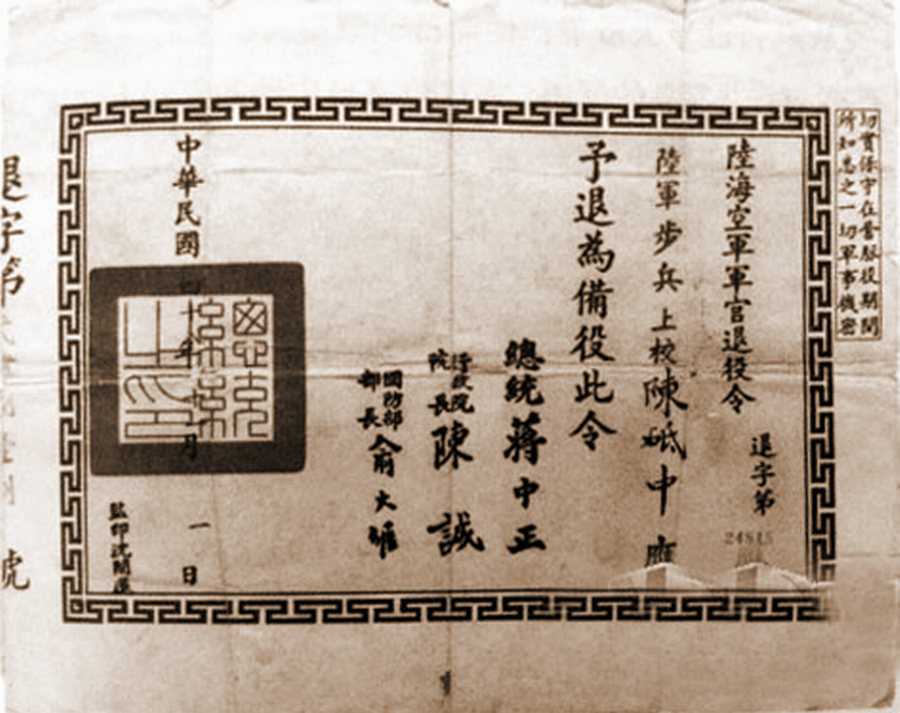 切實保守在營服役期間
所知悉之一切軍事機密
陸海空軍軍官退役令
退字第
24815
陸軍步兵上校陳砥中應
予退為備役此令
總統蔣中正
行政院
院長陳誠
國防部
部長俞大維
中華民國四十年月一日
監印沈開運
總統之印
退字第
號